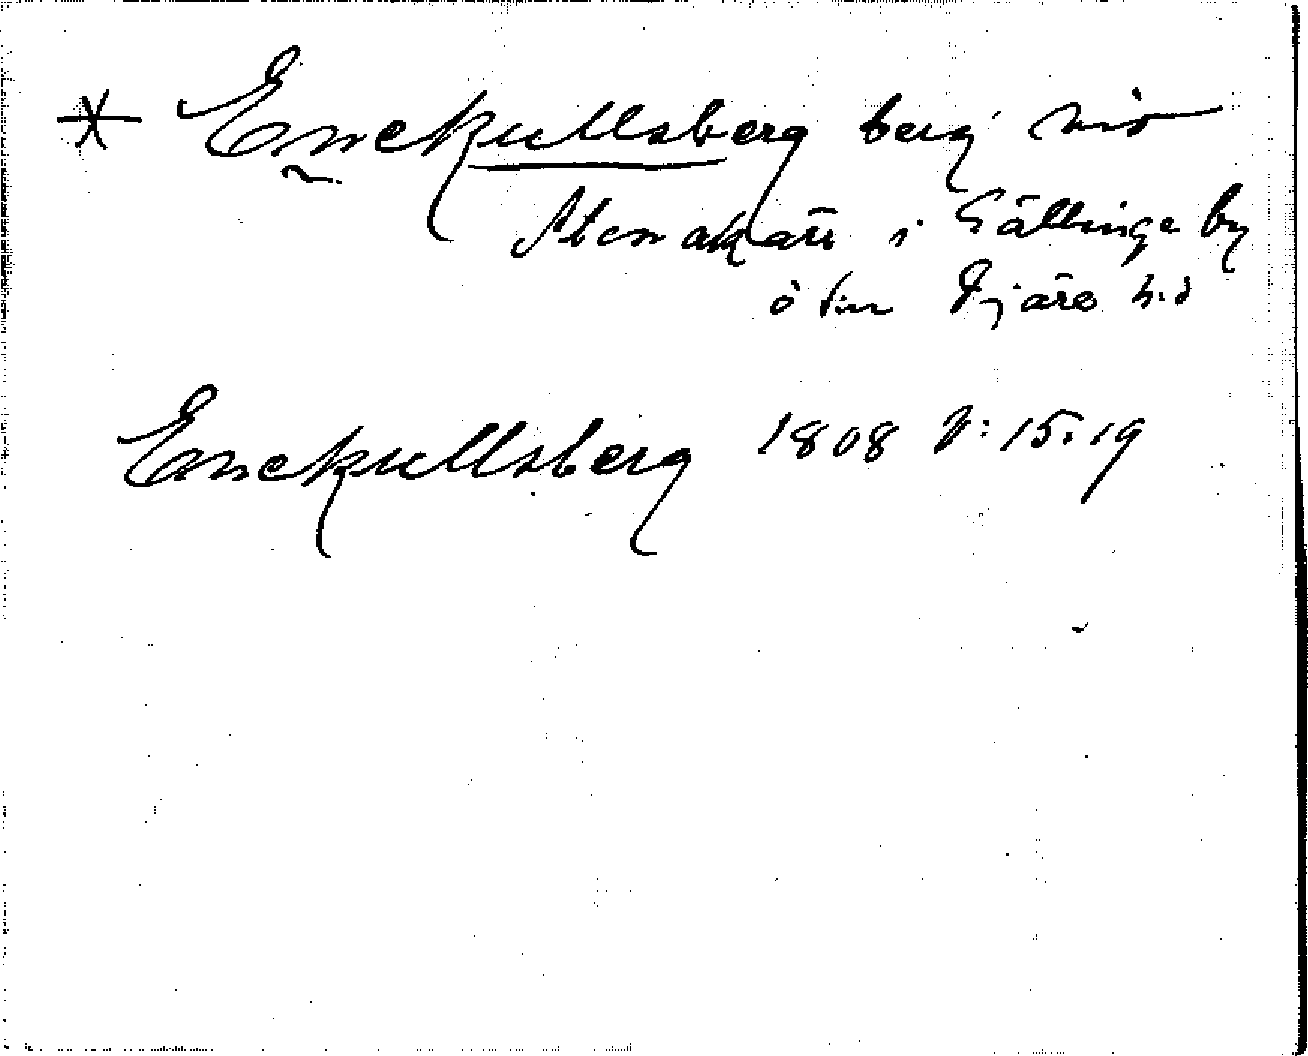 * Enekullsberg berg vid
Stenakärr i Gällinge by
o sn Fjäre h.d
Enekullsberg 1808 V: 15.19